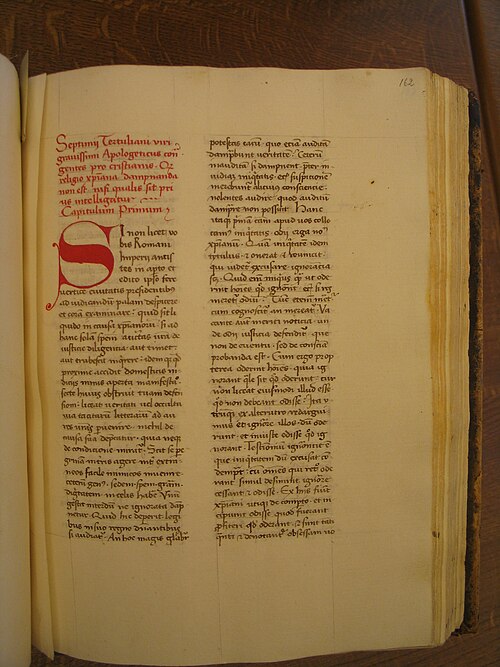 162
Septimij Tertuliani viri
grauissimi Apologeticus con
gentes pro cristianis. Qz
religio xpiana dampnanda
non est. nisi qualis sit pri
us intelligatur
Capitulum Primum
SI non licet vo
bis Romani
Imperij antis
tes in apto et
edito ipso fere
vertice ciuitatis presidentibus
ad iudicandum palam despicere
et coram examinare. quid sit li
quido in causa xpianorum. si ad
hanc solam speciem auctoritas vestra de
iusticie diligencia. aut timet
aut erubescit inquirere. idem qd
proxime accidit domesticis in
dicijs nimis aperta
secte huius obstruit viam defen
sioni. liceat veritati vel occulta
via tacitarum litterarum ad au
res vestras peruenire. nichil de
causa sua deprecatur. quia neqz
de conditione miratur. Scit se pe
grinam in terris agere. inter extra
neos facile inimicos inuenire
ceterum genus. sedem. spem. gratiam
dignitatem in celis habere. Vnum
gestit interdum ne ignorata dap
netur. Quid hic deperit legi
bus in suo regno dominantibus
si audiatur. An hoc magis
potestas earum. quo etiam auditam
dampnbunt veritatem. Ceterum
inauditam si dampnent. preter in
uidiam iniquitatis. etiam suspitionem
merebuntur alicuius consciencie.
nolentes audire. quod auditum
dampnare non possint. Hanc
itaqz primam causam apud vos collo
camus iniquitatis odij erga nomen
xpianorum. Quam iniquitatem idem
tytulus. et onerat et reuincit.
qui videtur excusare. ignorancia
sc. Quid enim iniquius quam vt ode
rint homines quod ignorant. etiam si res
meretur odium. Tunc etenim meretur
cum cognoscitur an mereatur. Va
cante autem meriti noticia. vn
de odij iusticia defenditur. que
non de euentu. sed de consciencia
probanda est. Cum ergo prop
terea oderint homines. quia ig
norant quale sit quod oderunt. cur
non liceat eiusmodi illud esse
quod non debeant odisse. Ita v
trumqz ex alterutro redargui
mus. et ignorare illos. dum ode
runt. et iniuste odisse dum ig
norant. Testimonium ignorantie est
que iniquitatem dum excusat con
dempnat. cum omnes qui retro ode
rant simul desinunt ignorare
cessant et odisse. Ex his fiunt
xpiani vtiqz de comperto. et in
cipiunt odisse quod fuerant
profiteri quod oderant. et sunt tanti
quanti et denotantur. obsessam vo